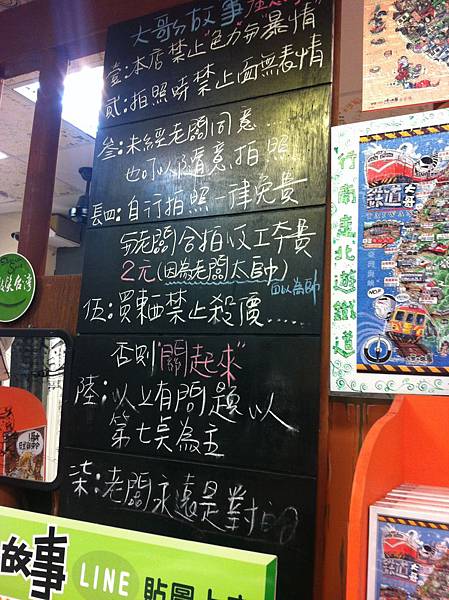 大哥ㄉ故事
壹:本店禁止"色"力分"暴情"
貳:拍照時禁止面無表情
叁:未經老闆同意...
也可以隨意拍照
長四:自行拍照一律免費
分老闆合拍收工本費
2元(因為老闆太帥)
自以為帥
伍:買東西禁止殺價.....
否則"關起來"
陸:以上有問題以
第七頁為主
柒:老闆永遠是對ㄉ
行動臺北遊鐵道
鐵道大哥
TAIWAN
故事
LINE
貼圖上
台灣